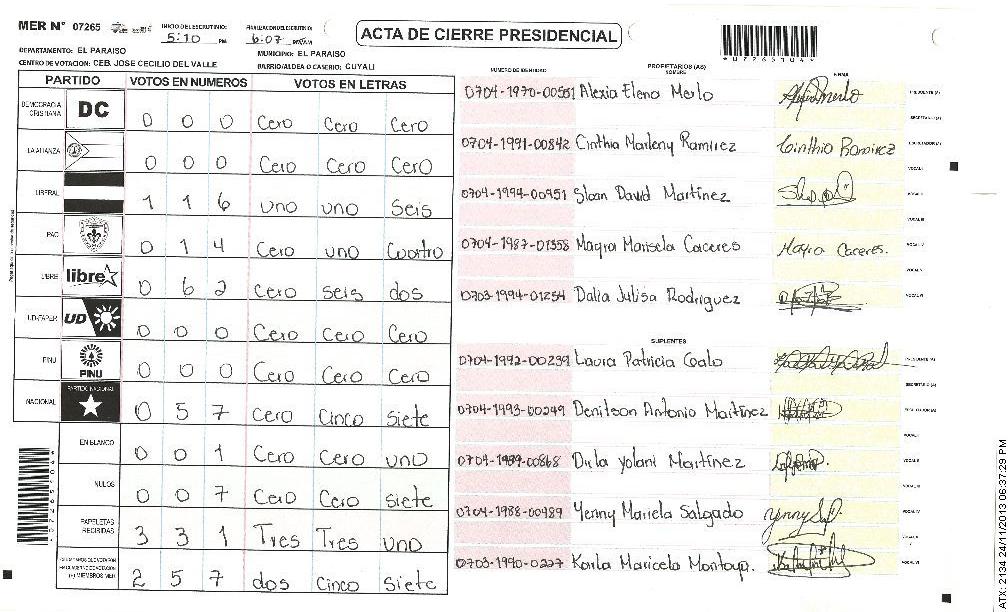 MER N° 07265
INICIO DEL ESCRUTINIO:
5:10 PM
FINALIZACION DEL ESCRUTINIO:
6:07
ACTA DE CIERRE PRESIDENCIAL
DEPARTAMENTO: EL PARAISO
MUNICIPIO: EL PARAISO
CENTRO DE VOTACION: CEB. JOSE CECILIO DEL VALLE
BARRIO/ALDEA O CASERIO: CUYALI
PARTIDO VOTOS EN NUMEROS VOTOS EN LETRAS
DEMOCRACIA CRISTIANA DC 0 0 0 Cero Cero Cero
LA ALIANZA 0 0 0 Cero Cero Cero
LIBERAL 1 1 6 uno uno seis
PAC 0 1 4 Cero uno Cuatro
LIBRE libre 0 6 2 Cero seis dos
UD-FAPER UD 0 0 0 Cero Cero Cero
PINU PINU 0 0 0 Cero Cero Cero
NACIONAL PARTIDO NACIONAL 0 5 7 Cero Cinco siete
EN BLANCO 0 0 1 Cero Cero uno
NULOS 0 0 7 Cero Cero siete
PAPELETAS RECIBIDAS 3 3 1 Tres Tres uno
2 5 7 dos Cinco siete
NUMERO DE IDENTIDAD PROPIETARIOS (AS) NOMBRE FIRMA
0704-1970-00551 Alexia Elena Merlo PRESIDENTE (A)
SECRETARIO (A)
0704-1991-00842 Cinthia Marleny Ramirez Cinthia Ramirez ESCRUTADOR (A)
VOCAL I
0704-1994-00951 Sloan David Martinez VOCAL II
VOCAL III
0704-1987-01358 Mayra Marisela Caceres Mayra Caceres. VOCAL IV
VOCAL V
0703-1994-01254 Dalia Julisa Rodriguez VOCAL VI
SUPLENTES
0704-1992-00239 Laura Patricia Coalo PRESIDENTE (A)
SECRETARIO (A)
0704-1993-00249 Denilson Antonio Martinez ESCRUTADOR (A)
VOCAL I
0704-1989-00868 Yolani Martinez VOCAL II
VOCAL III
0704-1988-00989 Yenny Mariela Salgado VOCAL IV
VOCAL V
0703-1990-0227 Karla Maricela Montoya. VOCAL VI
ATX: 2134 24/11/2013 06:37:29 PM